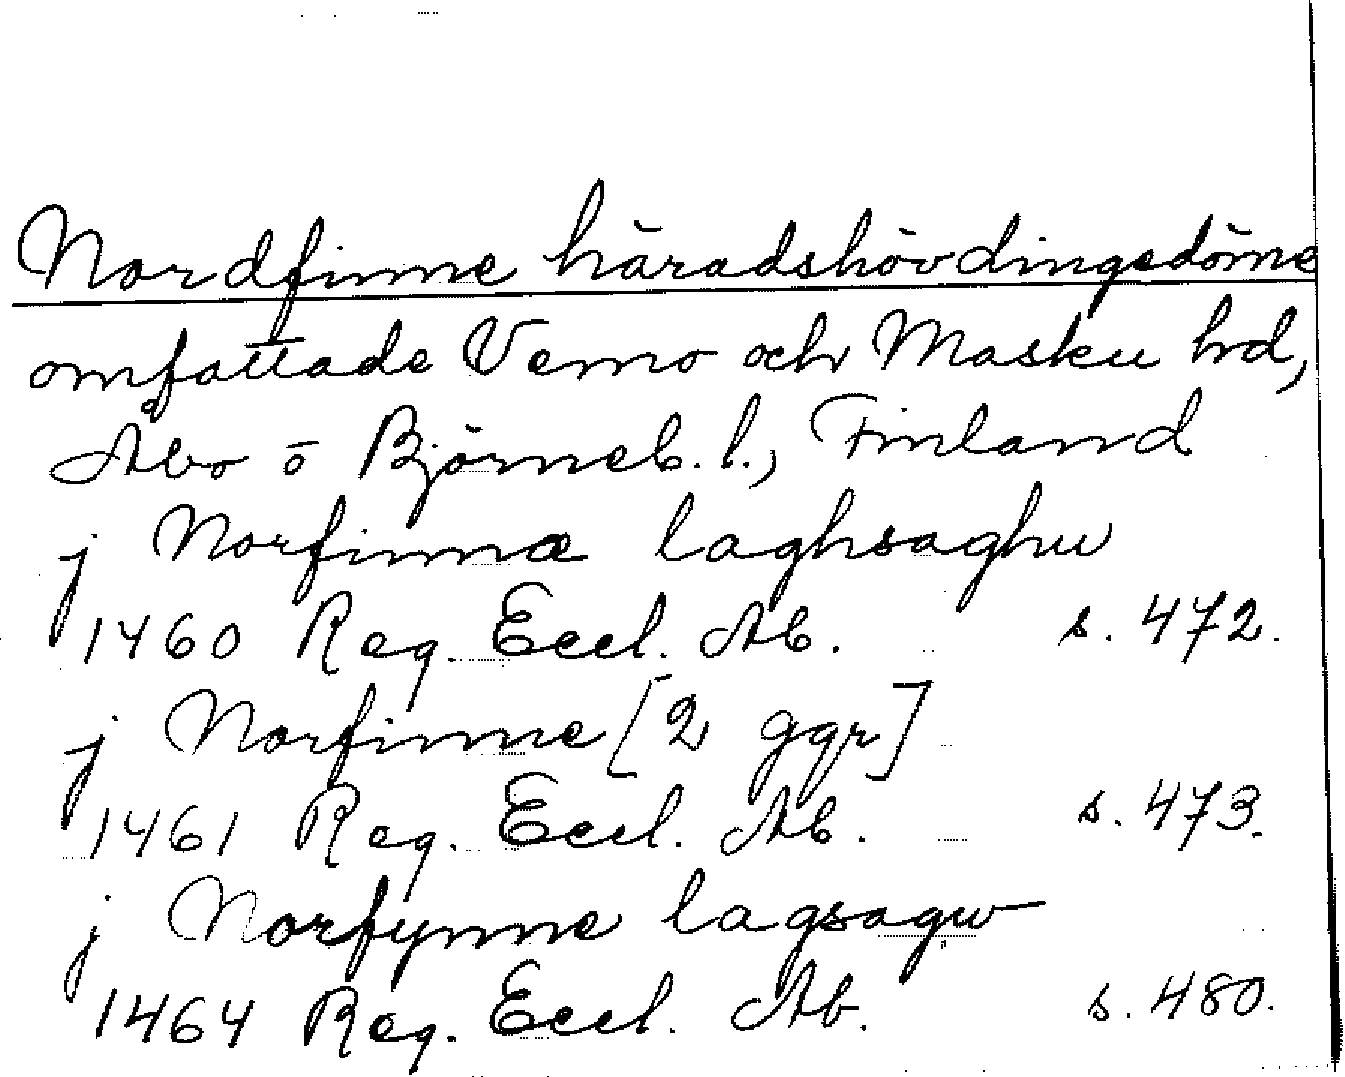 Nordfinne häradshövdingedöme
omfattade Vemo och Masku hd,
Åbo o Björneb. l., Finland
j Norfinnæ laghsaghu
1460 Reg. Eccl. Ab. s. 472.
j Norfinne [2 ggr]
1461 Reg. Eccl. Ab. s. 473.
j Norfynne lagsagw
1464 Reg. Eccl. Ab. s. 480.